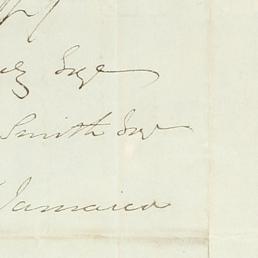 Esqe
Smith Esqr
Jamaica